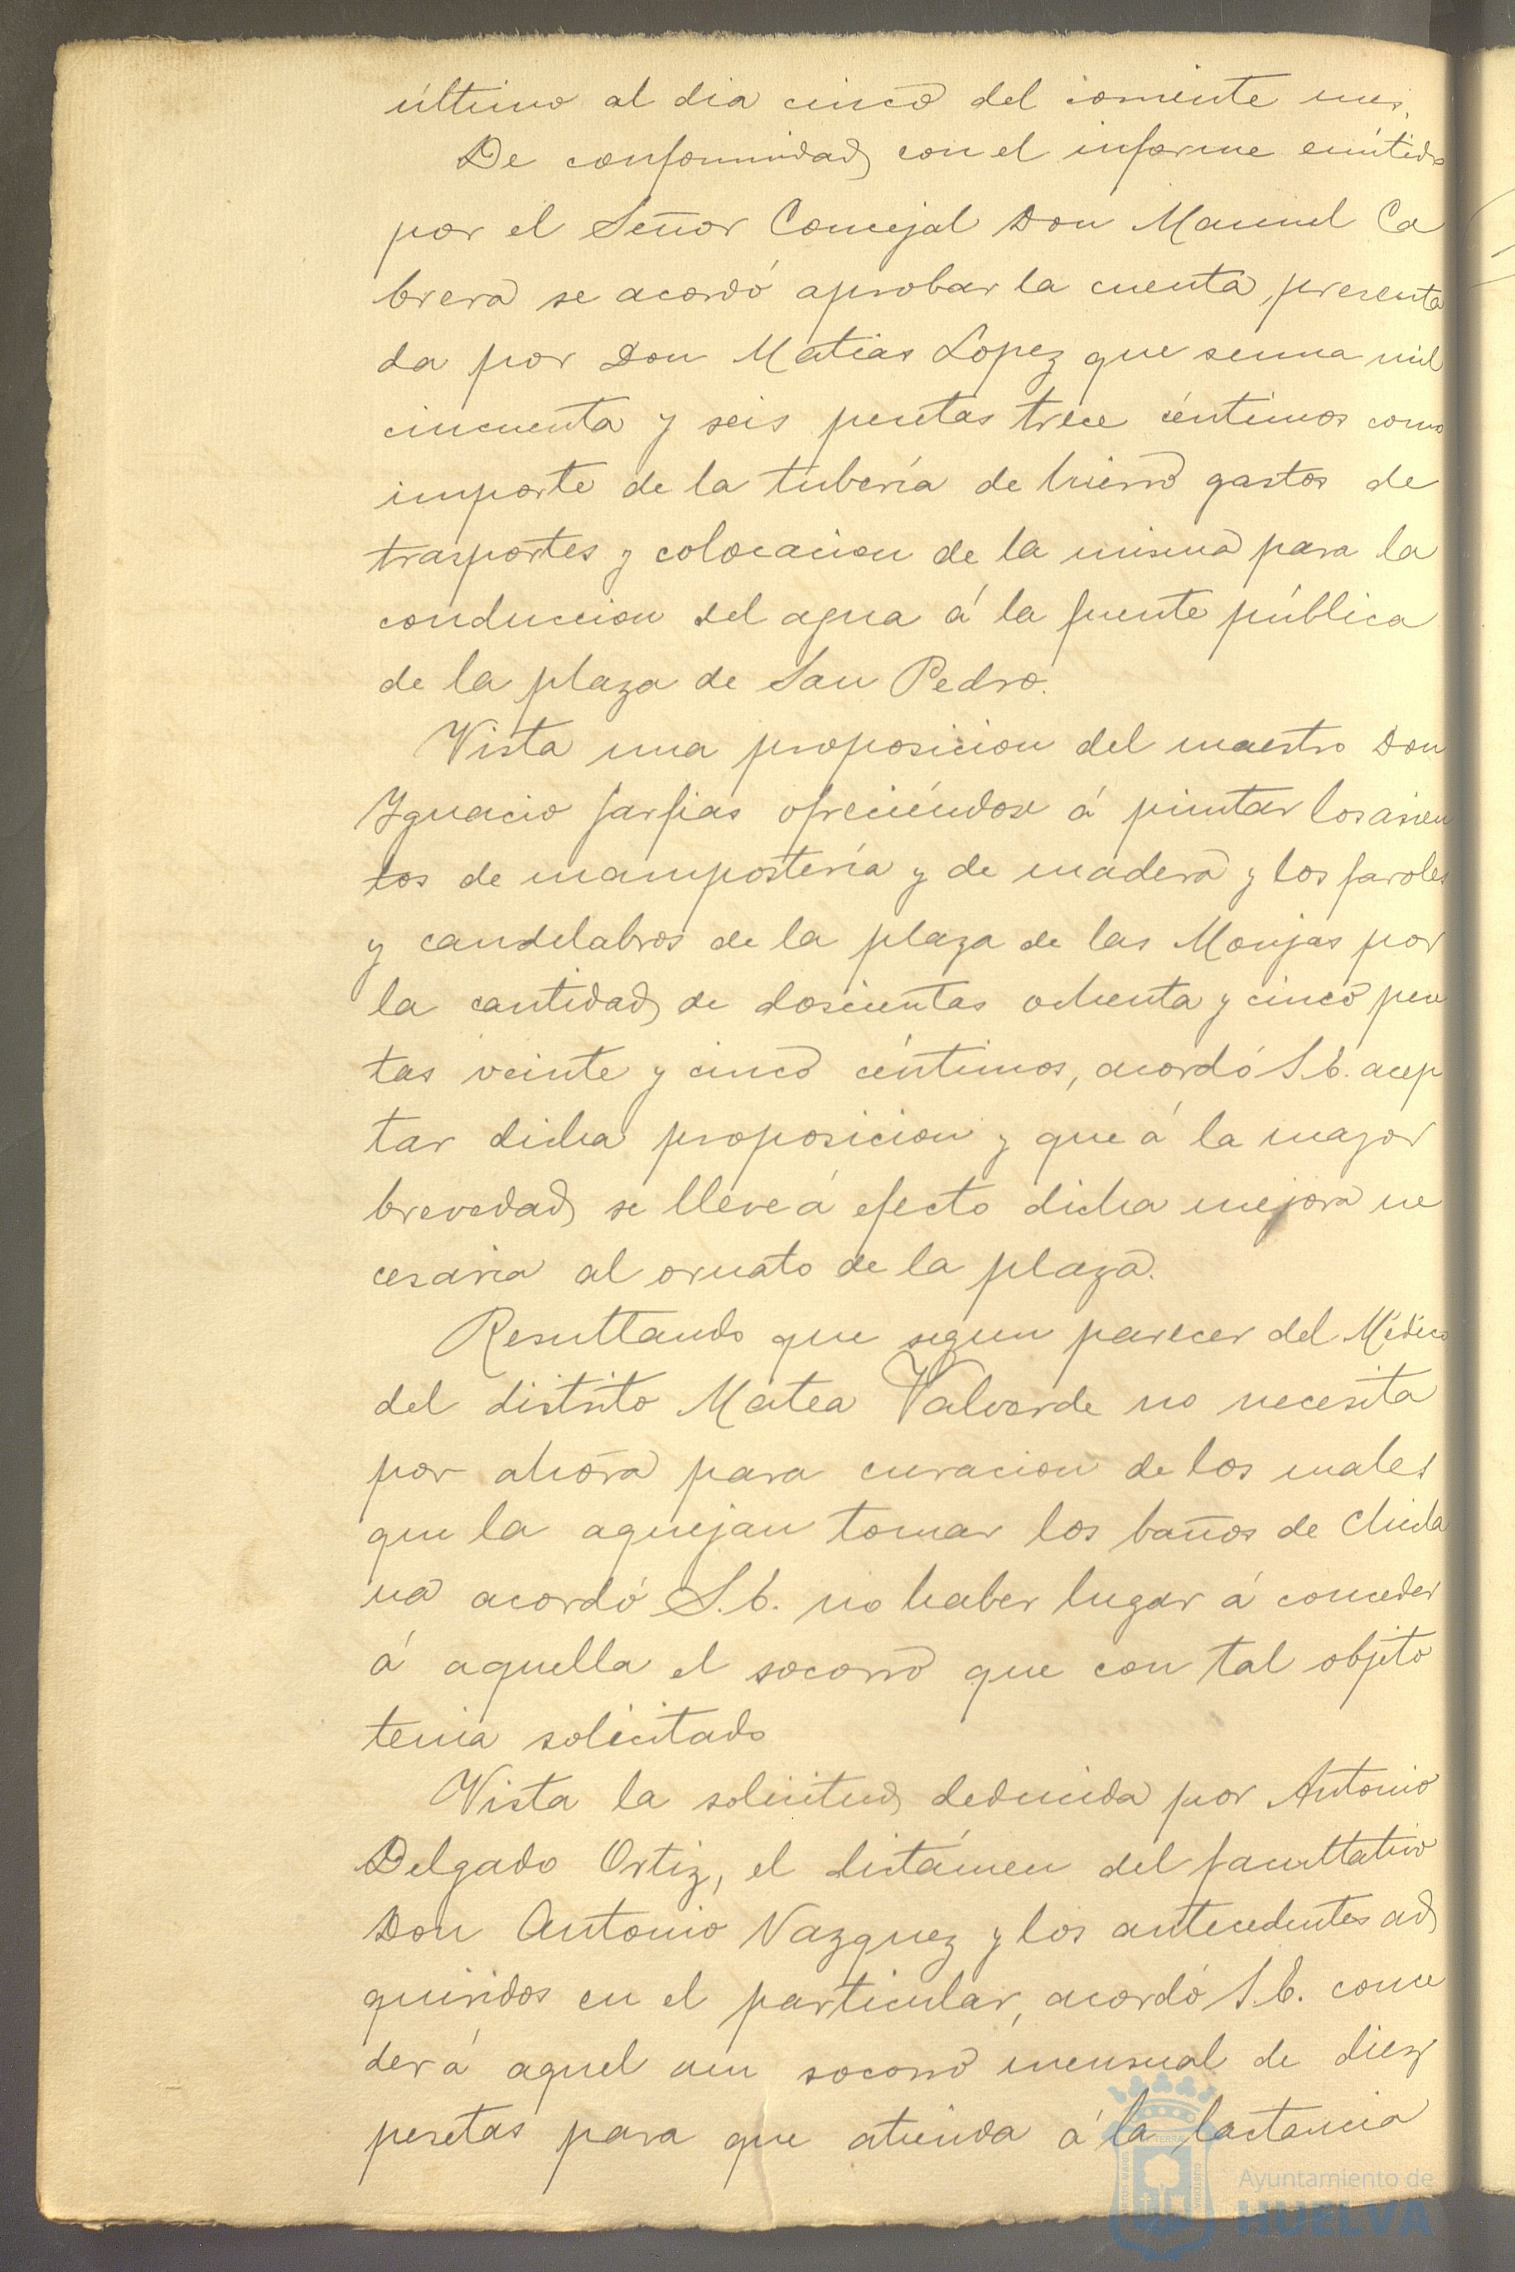 último al dia cinco del corriente mes.
De conformidad con el informe emitido
por el Señor Concejal Don Manuel Ca
brera se acordó aprobar la cuenta presenta
da por Don Matias Lopez que suma mil
cincuenta y seis pesetas trece céntimos como
importe de la tubería de hierro gastos de
trasportes y colocacion de la misma para la
conduccion del agua á la fuente pública
de la plaza de San Pedro.
Vista una proposicion del maestro Don
Ygnacio farfias ofreciéndose á pintar los asien
tos de mampostería y de madera y los faroles
y candelabros de la plaza de las Monjas por
la cantidad de doscientas ochenta y cinco pese
tas veinte y cinco céntimos, acordó S.E. acep
tar dicha proposicion y que á la mayor
brevedad se lleve á efecto dicha mejora ne
cesaria al ornato de la plaza.
Resultando que segun parecer del Médico
del distrito Matea Valverde no necesita
por ahora para curacion de los males
que la aquejan tomar los baños de Chicla
na acordó S.E. no haber lugar á conceder
á aquella el socorro que con tal objeto
tenia solicitado
Vista la solicitud deducida por Antonio
Delgado Ortiz, el dictámen del facultativo
Don Antonio Vazquez y los antecedentes ad
quiridos en el particular, acordó S.E. conce
der á aquel un socorro mensual de diez
pesetas para que atienda á la lactancia
Ayuntamiento de
HUELVA